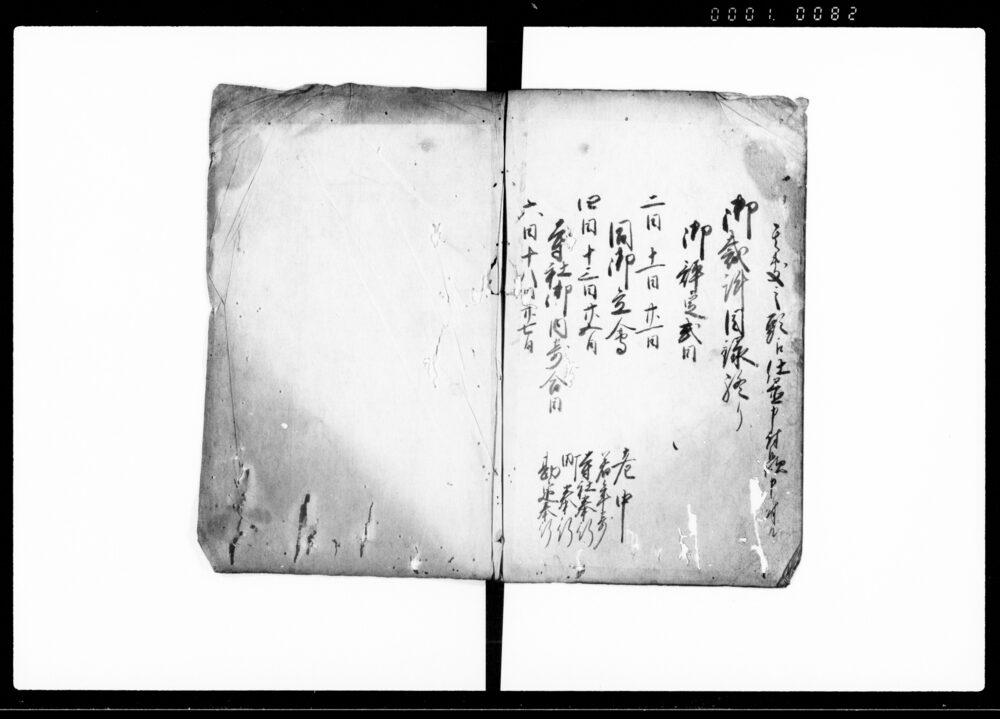 0001. 0082
御裁許目録終り
御評定式日
二日 十一日 廿一日
同御立會
四日 十三日 廿五日
寺社御内寄合日
六日 十八日 廿七日
老中
若年寄
寺社奉行
町奉行
勘定奉行